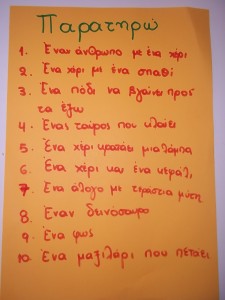 Παρατηρώ
1. Έναν άνθρωπο με ένα χέρι
2. Ένα χέρι με ένα σπαθί
3. Ένα πόδι να βγαίνει προς
τα έξω
4. Ένας ταύρος που κλαίει
5. Ένα χέρι κρατάει μια λάμπα
6. Ένα χέρι και ένα κεφάλι
7. Ένα άλογο με τεράστια μύτη
8. Έναν δεινόσαυρο
9. Ένα φως
10. Ένα μαξιλάρι που πετάει